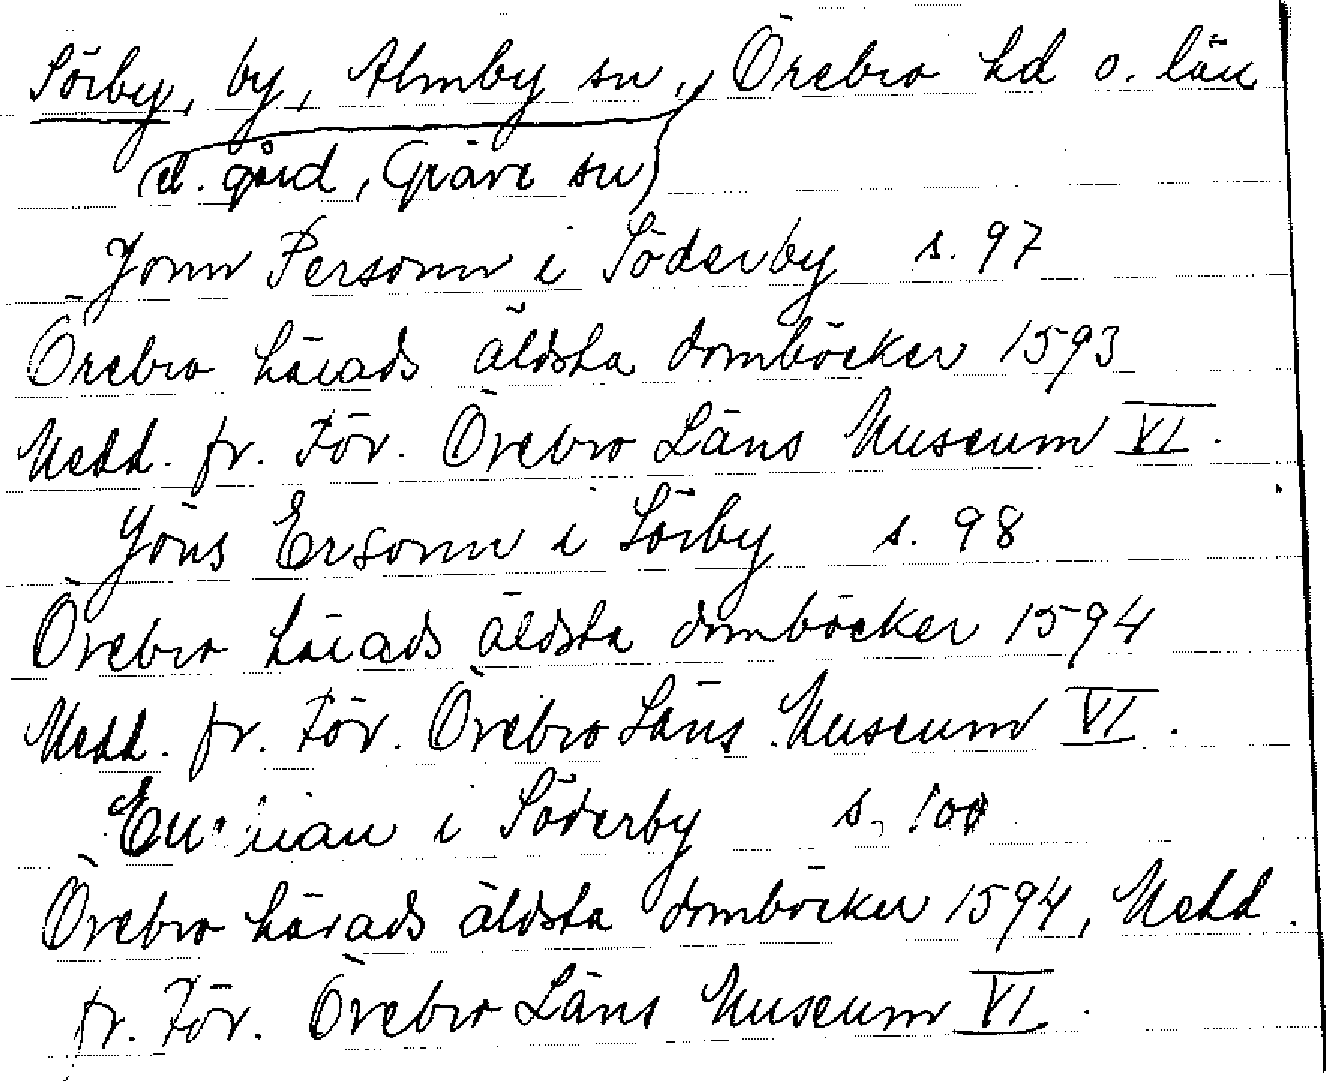 Sörby, by, Almby sn, Örebro hd o. län
(el. gård, Gräve sn)
Jonn Personn i Söderby s. 97
Örebro härads äldsta domböcker 1593
Medd. fr. För. Örebro Läns Museum VI.
Jöns Ersonn i Sörby s. 98
Örebro härads äldsta domböcker 1594
Medd. fr. För. Örebro Läns Museum VI.
i Söderby s. 100
Örebro härads äldsta domböcker 1594, Medd.
fr. För. Örebro Läns Museum VI.